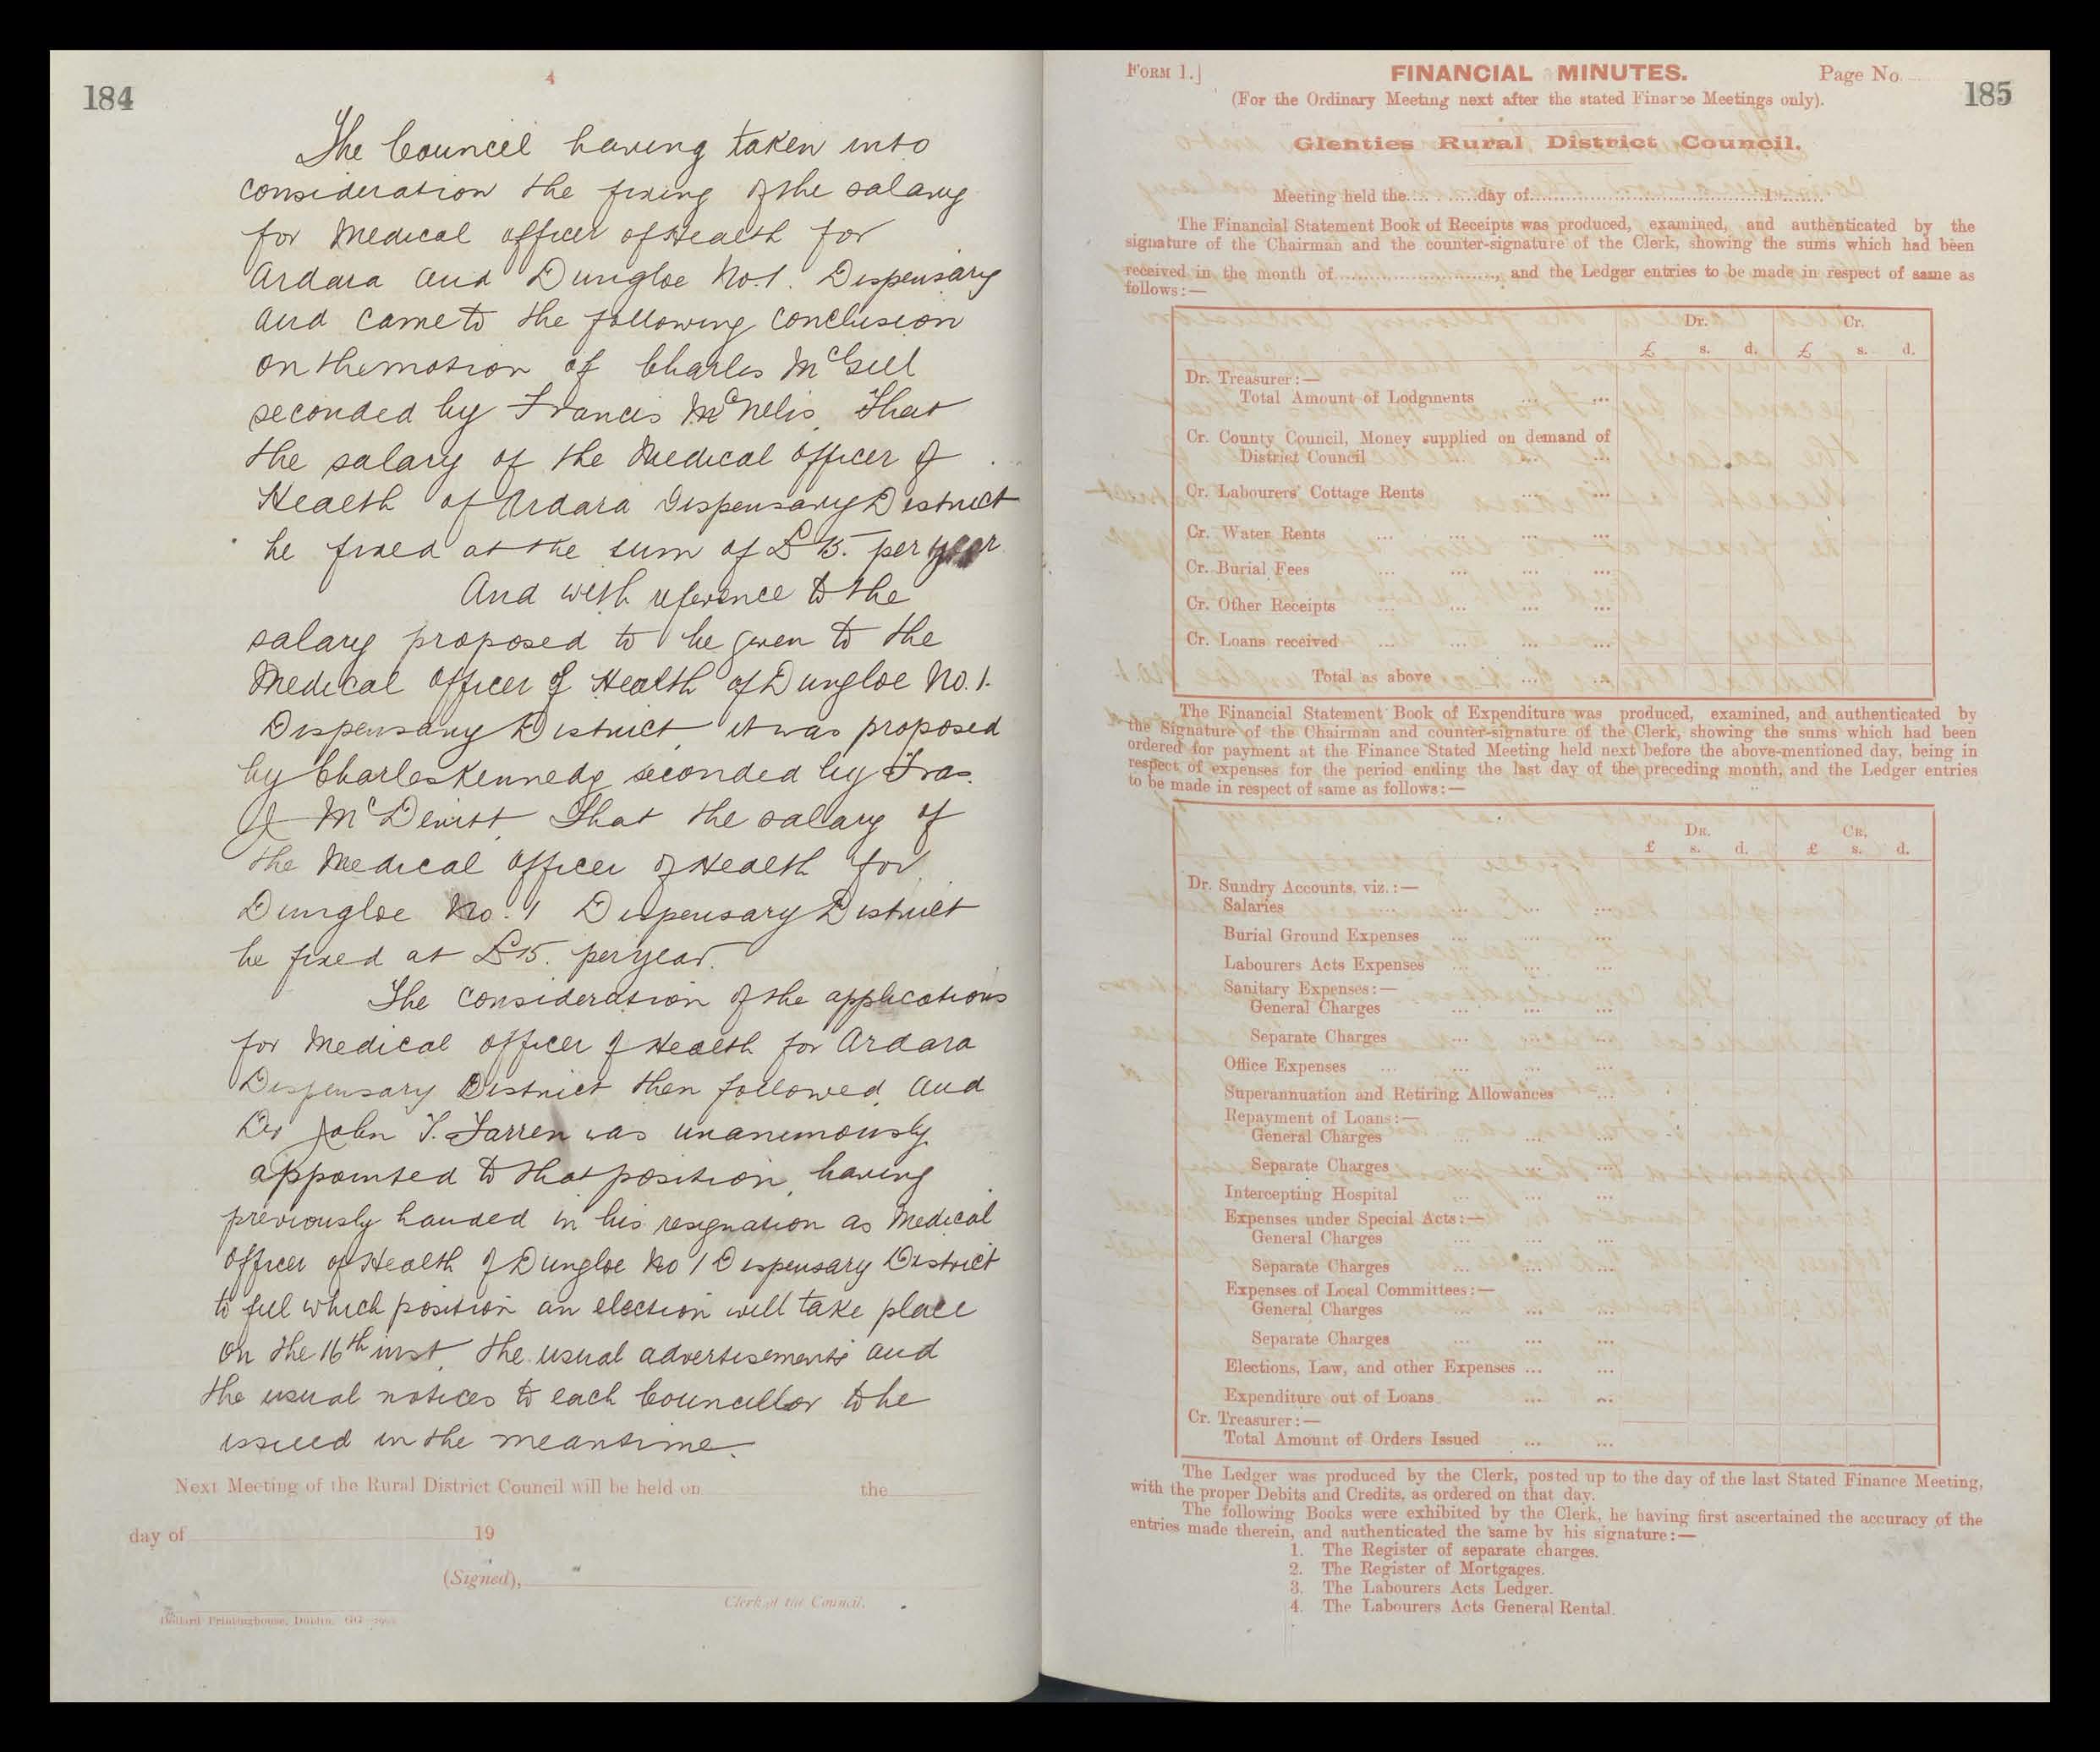 184
4
The Council having taken into
consideration the fixing of the salary
for Medical officer of Health for
Ardara and Dungloe No. 1. Dispensary
and came to the following conclusion
on the motion of Charles McGill
seconded by Francis McNelis, That
the salary of the Medical Officer of
Health of Ardara Dispensary District
be fixed at the sum of £15. per year
And with reference to the
salary proposed to be given to the
Medical Officer of Health of Dungloe No. 1.
Dispensary District, it was proposed
by Charles Kennedy seconded by Fras.
J McDevitt That the salary of
the Medical Officer of Health for
Dungloe No. 1 Dispensary District
be fixed at £15. per year.
The consideration of the applications
for Medical officer of Health for Ardara
Dispensary District then followed, and
Dr John T. Farren was unanimously
appointed to that position, having
previously handed in his resignation as Medical
officer of Health of Dungloe No 1 Dispensary District
to fill which position an election will take place
on the 16th inst, the usual advertisements and
the usual notices to each Councillor to be
issued in the meantime.
Next Meeting of the Rural District Council will be held on the
day of 19
(Signed),
Clerk of the Council.
Dollard Printinghouse, Dublin.
FORM 1.]
FINANCIAL MINUTES.
Page No.
185
(For the Ordinary Meeting next after the stated Finance Meetings only).
Glenties Rural District Council.
Meeting held the day of 1
The Financial Statement Book of Receipts was produced, examined, and authenticated by the
signature of the Chairman and the counter-signature of the Clerk, showing the sums which had been
received in the month of , and the Ledger entries to be made in respect of same as
follows:—
Dr. Cr.
£ s. d. £ s. d.
Dr. Treasurer:—
Total Amount of Lodgments ... ...
Cr. County Council, Money supplied on demand of
District Council ... ...
Cr. Labourers' Cottage Rents ... ...
Cr. Water Rents ... ... ... ...
Cr. Burial Fees ... ... ... ...
Cr. Other Receipts ... ... ... ...
Cr. Loans received ... ... ... ...
Total as above ... ...
The Financial Statement Book of Expenditure was produced, examined, and authenticated by
the Signature of the Chairman and counter-signature of the Clerk, showing the sums which had been
ordered for payment at the Finance Stated Meeting held next before the above-mentioned day, being in
respect of expenses for the period ending the last day of the preceding month, and the Ledger entries
to be made in respect of same as follows:—
DR. CR.
£ s. d. £ s. d.
Dr. Sundry Accounts, viz.:—
Salaries ... ... ... ...
Burial Ground Expenses ... ... ...
Labourers Acts Expenses ... ... ...
Sanitary Expenses:—
General Charges ... ... ...
Separate Charges ... ... ...
Office Expenses ... ... ... ...
Superannuation and Retiring Allowances ...
Repayment of Loans:—
General Charges ... ... ...
Separate Charges ... ... ...
Intercepting Hospital ... ... ...
Expenses under Special Acts:—
General Charges ... ... ...
Separate Charges ... ... ...
Expenses of Local Committees:—
General Charges ... ... ...
Separate Charges ... ... ...
Elections, Law, and other Expenses ... ...
Expenditure out of Loans ... ...
Cr. Treasurer:—
Total Amount of Orders Issued ... ...
The Ledger was produced by the Clerk, posted up to the day of the last Stated Finance Meeting,
with the proper Debits and Credits, as ordered on that day.
The following Books were exhibited by the Clerk, he having first ascertained the accuracy of the
entries made therein, and authenticated the same by his signature:—
1. The Register of separate charges.
2. The Register of Mortgages.
3. The Labourers Acts Ledger.
4. The Labourers Acts General Rental.